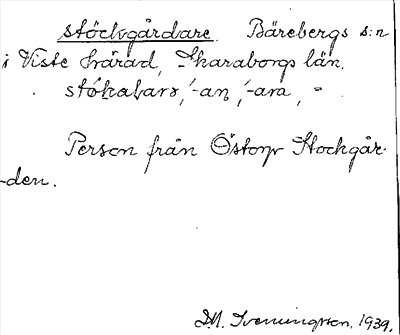 stöckgårdare. Bärebergs s:n
i Viste härad, Skaraborgs län.
-an, -ara, =
Person från Östorp Stockgår-
den.
D.M. Svenningsson. 1939.